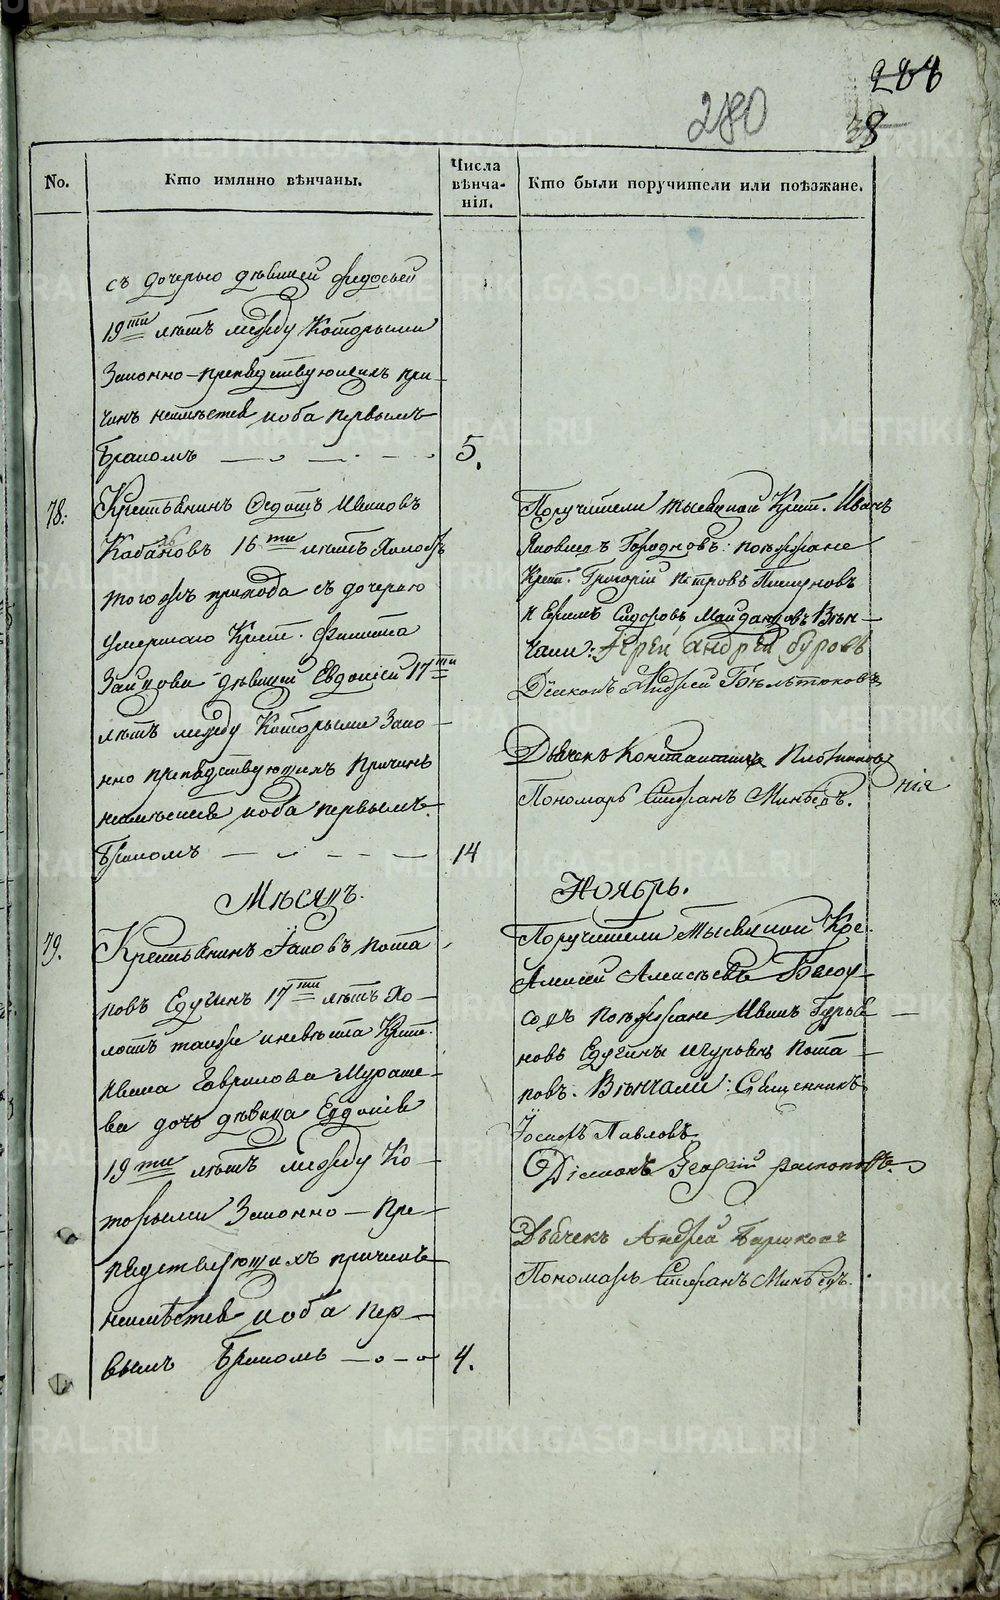 288
280
38
No.
Кто имянно вѣнчаны.
Числа вѣнчанія.
Кто были поручители или поѣзжане.
съ дочерью дѣвицей Федосьей
19ти лѣтъ между Которыми
Законно-препядствующихъ при-
чинъ неимѣется и оба первымъ
бракомъ
5.
78.
Крестьянинъ Федотъ Ивановъ
Кабановъ 16ти лѣтъ Холостъ
тогожъ прихода съ дочерью
умершаго Крест. Филипа
Зайкова дѣвицей Евдокіей 17ти
лѣтъ между Которыми Зако-
нно препядствующихъ причинъ
неимѣется и оба первымъ
бракомъ
14
Поручители тысяцкой Крест. Иванъ
Яковлевъ Городновъ: поѣзжане
Крест. Григорій Петровъ
и Ефимъ Сидоровъ Майдановъ Вѣн-
чали: Іерей Андрей Суровъ
Діаконъ Андрей
Дьячекъ Константинъ
нія
Пономарь Стефанъ
Мѣсяцъ.
Ноябрь.
79.
Крестьянинъ Іаковъ Пота
повъ Едугинъ 17ти лѣтъ Хо-
лостъ также и невѣста Крест.
Ивана Гаврилова Мураше-
ва дочь дѣвица Евдокія
19ти лѣтъ между Ко-
торыми Законно-Пре-
пядствующихъ причинъ
неимѣется и оба пер-
вымъ бракомъ
4.
Поручители Тысяцкой Кре.
Алексей Алексѣевъ Белоу-
совъ поѣзжане Иванъ Гурья-
новъ Едугинъ и Гурьянъ Пота-
повъ. Вѣнчали: Священникъ
Іосифъ Павловъ
Діаконъ Георгій
Дьячекъ Андрей
Пономарь Стефанъ
METRIKI.GASO-URAL.RU